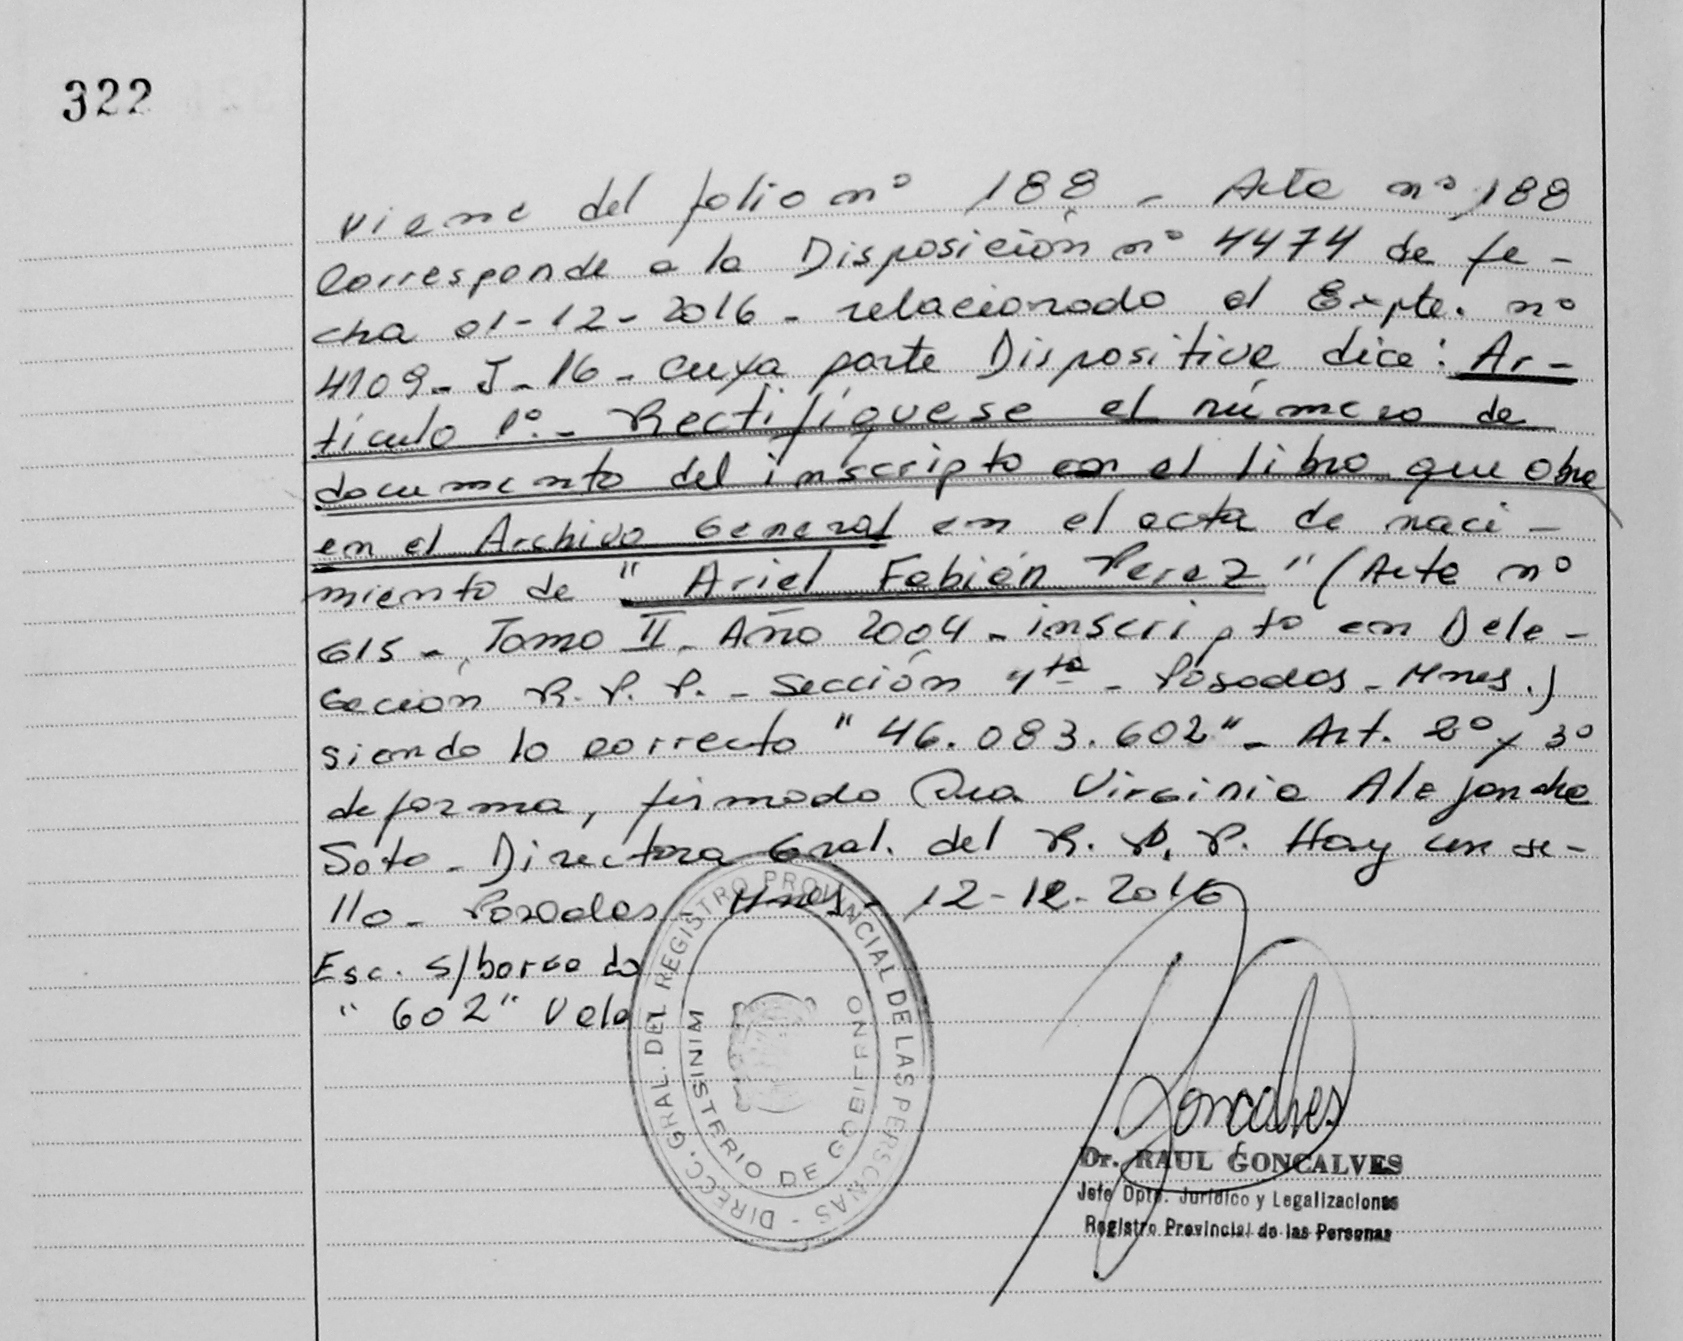 322
viene del folio nº 188 - Acta nº 188
Corresponde a la Disposición nº 4474 de fe-
cha 01-12-2016 - relacionado al Expte. nº
4109 - J - 16 - cuya parte Dispositiva dice: Ar-
tículo 1º - Rectifíquese el número de
documento del inscripto en el libro que obra
en el Archivo General en el acta de naci-
miento de "Ariel Fabián Perez" (Acta nº
615 - Tomo II - Año 2004 - inscripto en Dele-
gación R. P. P. - Sección 4ta - Posadas - Mnes.)
siendo lo correcto "46.083.602" - Art. 2º y 3º
de forma, firmado Dra Virginia Alejandra
Soto - Directora Gral. del R. P. P. Hay un se-
llo - Posadas - Mnes - 12-12-2016
Esc. s/borrado
"602" Vale
DIRECC. GRAL. DEL REGISTRO PROVINCIAL DE LAS PERSONAS -
MINISTERIO DE GOBIERNO
Goncalves
Dr. RAUL GONCALVES
Jefe Dpto. Jurídico y Legalizaciones
Registro Provincial de las Personas